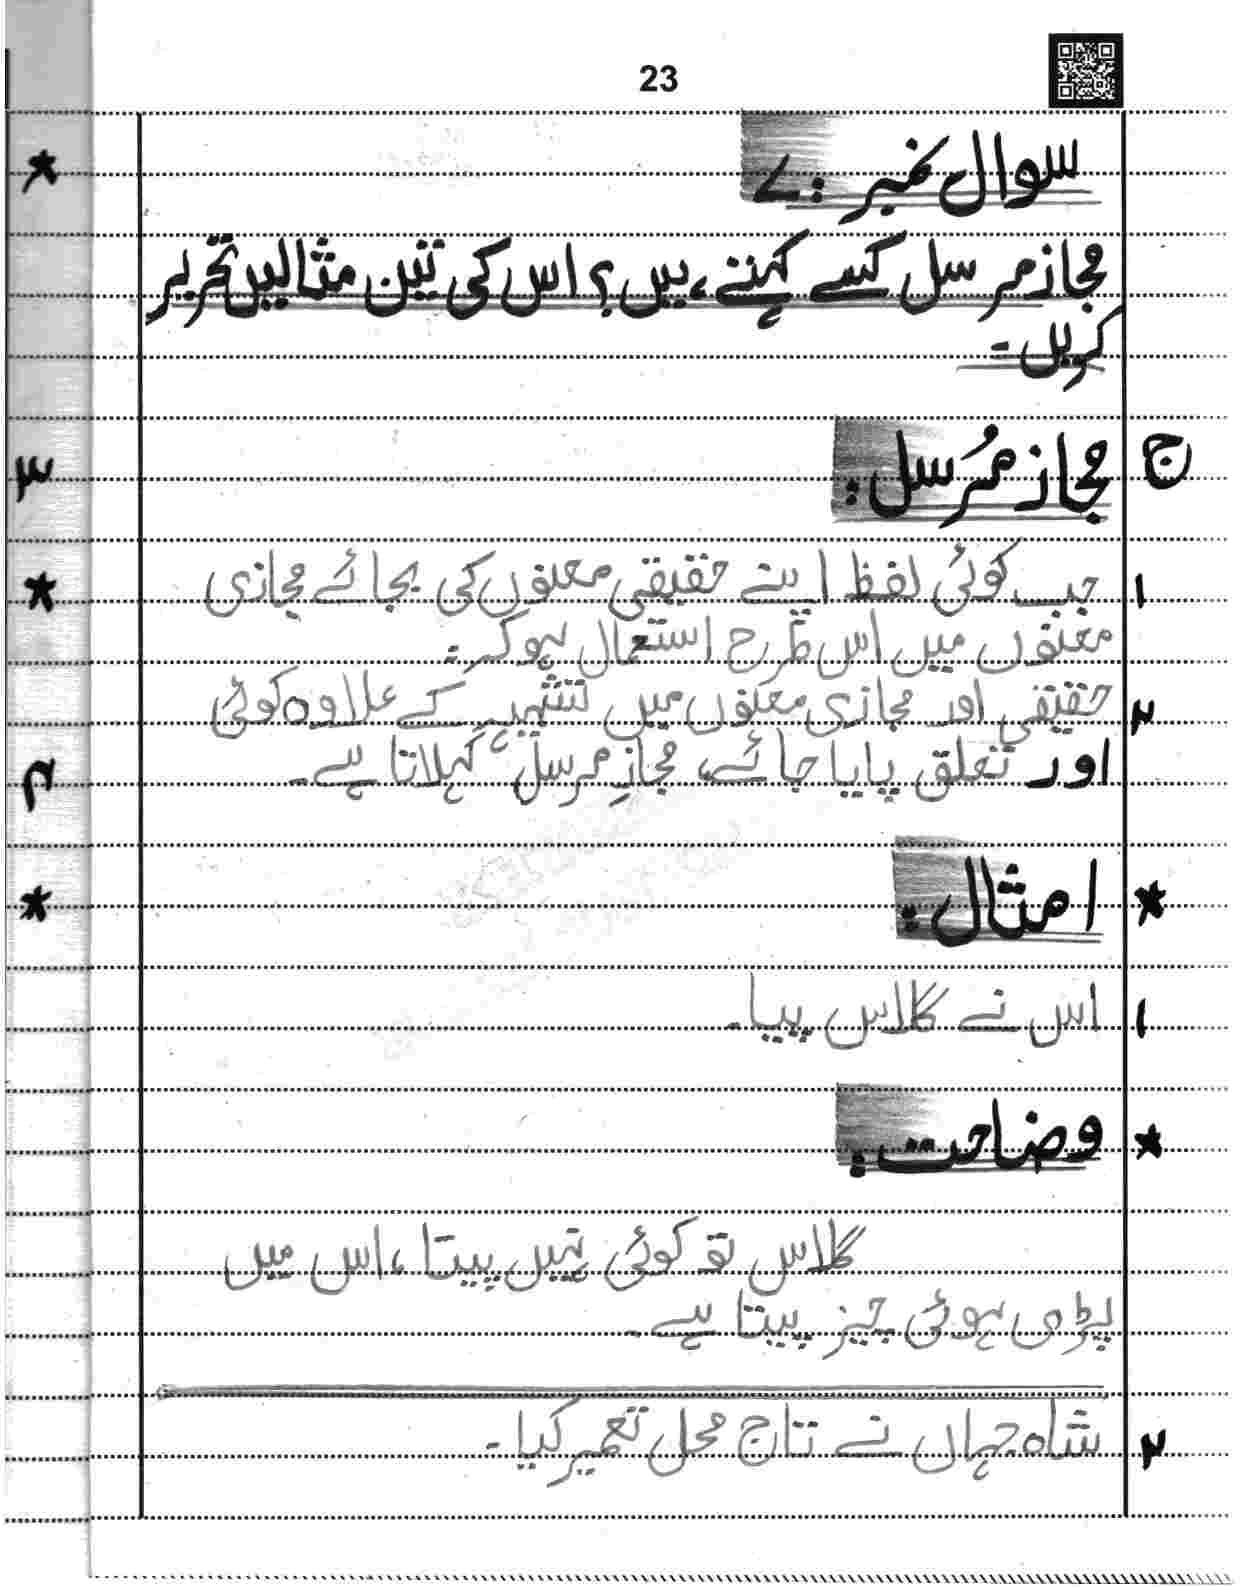 23
سوال نمبر: ۷
مجاز مرسل کسے کہتے ہیں؟ اس کی تین مثالیں تحریر
کریں۔
ج مجاز مُرسل:
۱ جب کوئی لفظ اپنے حقیقی معنوں کی بجائے مجازی
معنوں میں اس طرح استعمال ہو کہ:
۲ حقیقی اور مجازی معنوں میں تشبیہ کے علاوہ کوئی
اور تعلق پایا جائے، مجازِ مرسل کہلاتا ہے۔
* امثال:
۱ اس نے گلاس پیا۔
* وضاحت:
گلاس تو کوئی نہیں پیتا، اس میں
پڑی ہوئی چیز پیتا ہے۔
۲ شاہ جہاں نے تاج محل تعمیر کیا۔